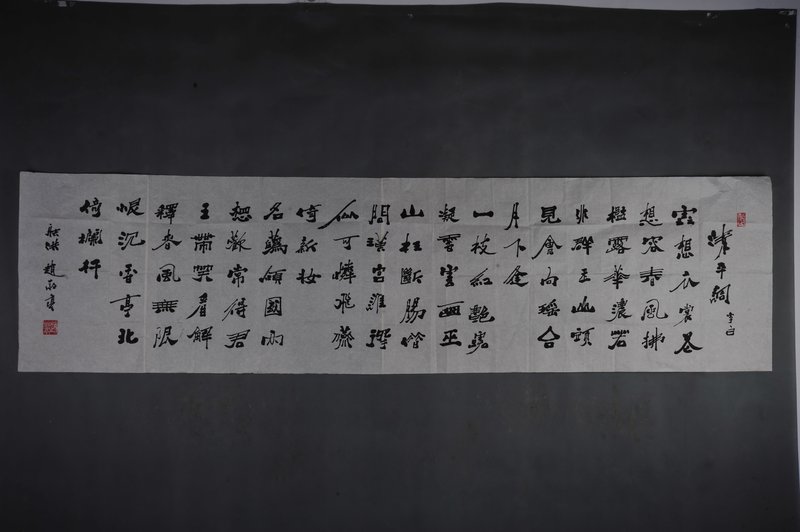 清平調 李白
雲想衣裳花
想容春風拂
檻露華濃若
非群玉山頭
見會向瑤台
月下逢
一枝紅艷露
凝香雲雨巫
山枉斷腸借
問漢宮誰得
似可憐飛燕
倚新妝
名花傾國兩
相歡常得君
王帶笑看解
釋春風無限
恨沉香亭北
倚欄杆
趙